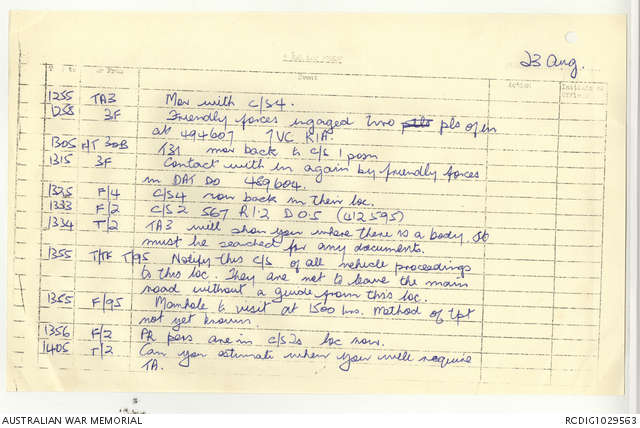 23 Aug.
Event
Action
1255 TA3 Mov with C/S4.
1258 3F Friendly forces engaged two plts pls of en
at 494607 7VC KIA.
1305 H/T 30B T31 mov back to C/S 1 posn
1315 3F Contact with en again by friendly forces
in DAT DO 489604.
1325 F/4 C/S4 now back in their loc.
1333 F/2 C/S 2 567 R1.2 D0.5 (412595)
1334 T/2 TA3 will show you where there is a body. It
must be searched for any documents.
1355 T/TF T/95 Notify this C/S of all vehicle proceedings
to this loc. They are not to leave the main
road without a guide from this loc.
1355 F/95 Manhole to visit at 1500 hrs. Method of tpt
not yet known.
1356 F/2 PR pers are in C/S 2s loc now.
1405 T/2 Can you estimate when you will require
TA.
AUSTRALIAN WAR MEMORIAL
RCDIG1029563